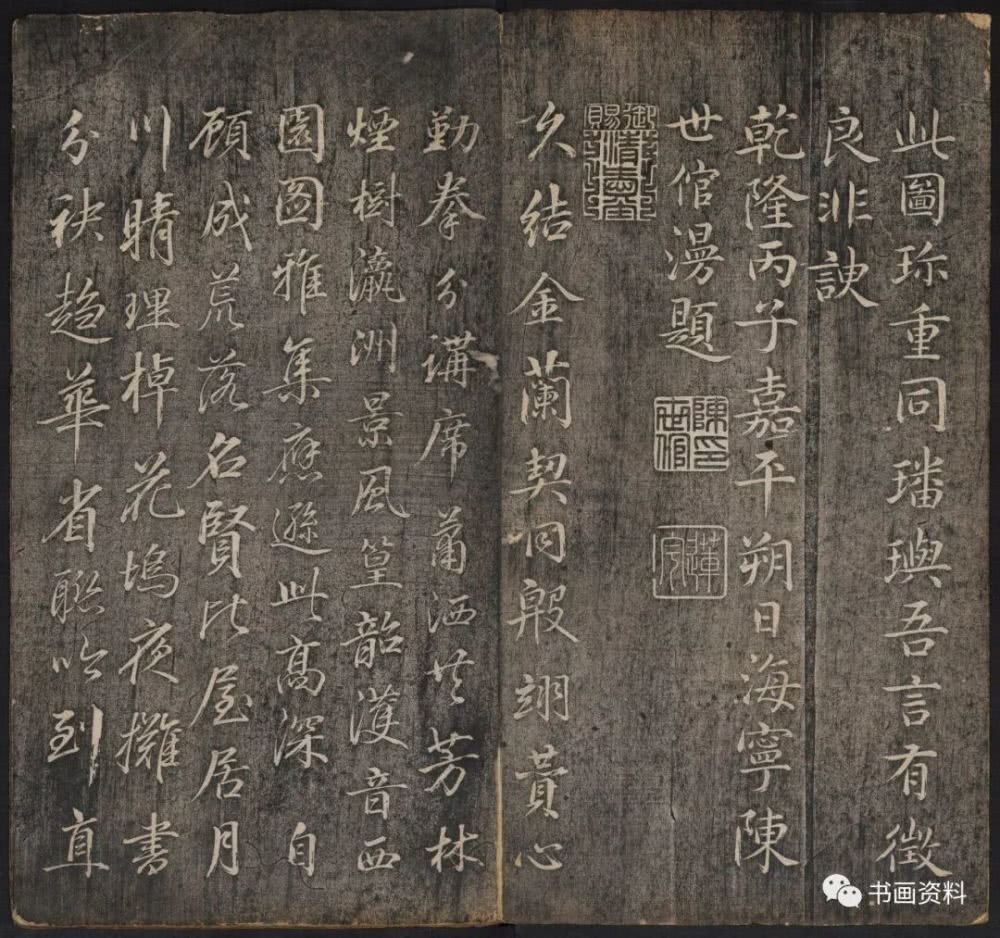 此圖珎重同璠璵吾言有徵
良非諛
乾隆丙子嘉平朔日海寧陳
世倌漫題
御賜
陳印世倌
蓮宇
久结金蘭契同殷翊賛心
勤拳分講席蕭洒共芳林
煙樹瀛洲景風篁韶濩音西
園图雅集應遜此高深自
顾成荒落名賢比屋居月
川晴理棹花塢夜攤書
分袂趍華省聮吟到直
书画资料